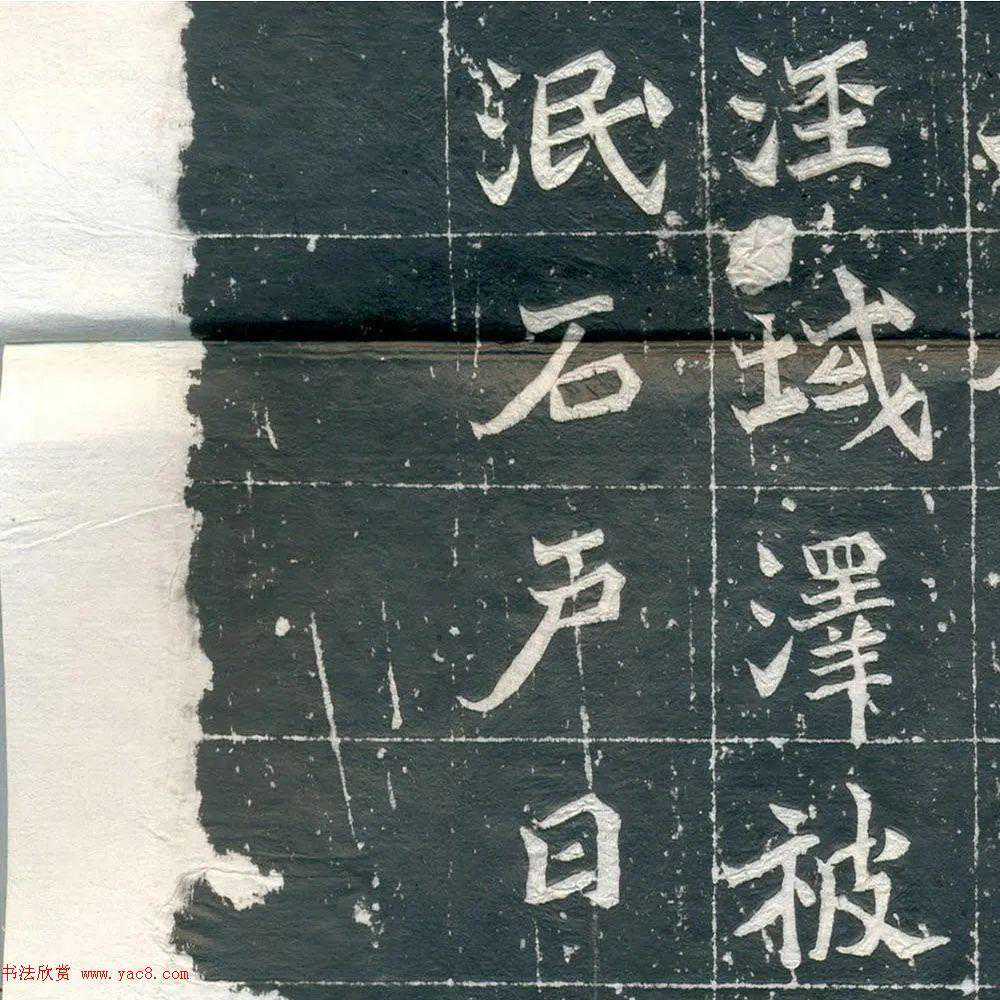 涇域澤被
泯石声日
书法欣赏 www.yac8.com